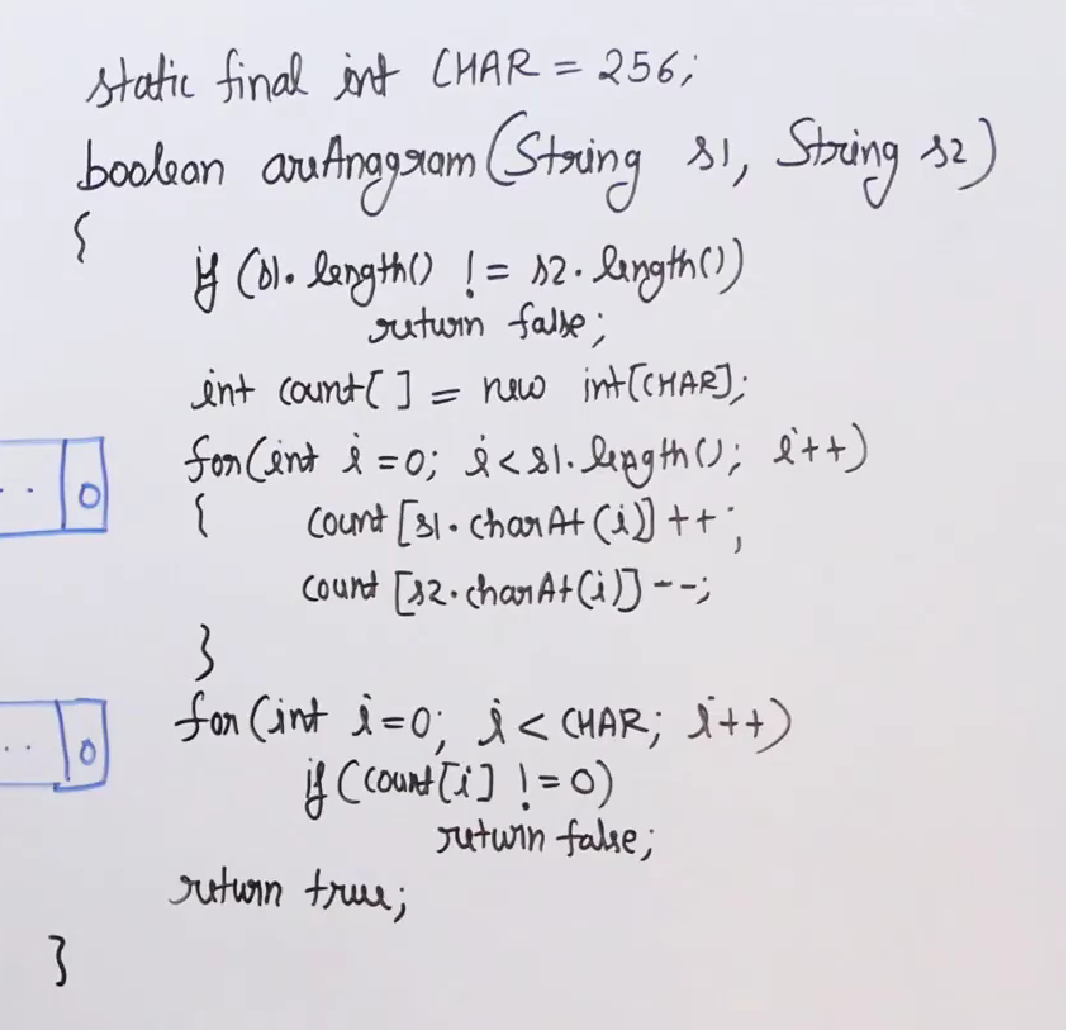 static final int CHAR = 256;
boolean areAnagram(String s1, String s2)
{
if (s1.length() != s2.length())
return false;
int count[] = new int[CHAR];
for(int i=0; i<s1.length(); i++)
{ count[s1.charAt(i)]++;
count[s2.charAt(i)]--;
}
for(int i=0; i<CHAR; i++)
if(count[i] !=0)
return false;
return true;
}
.. 0
.. 0